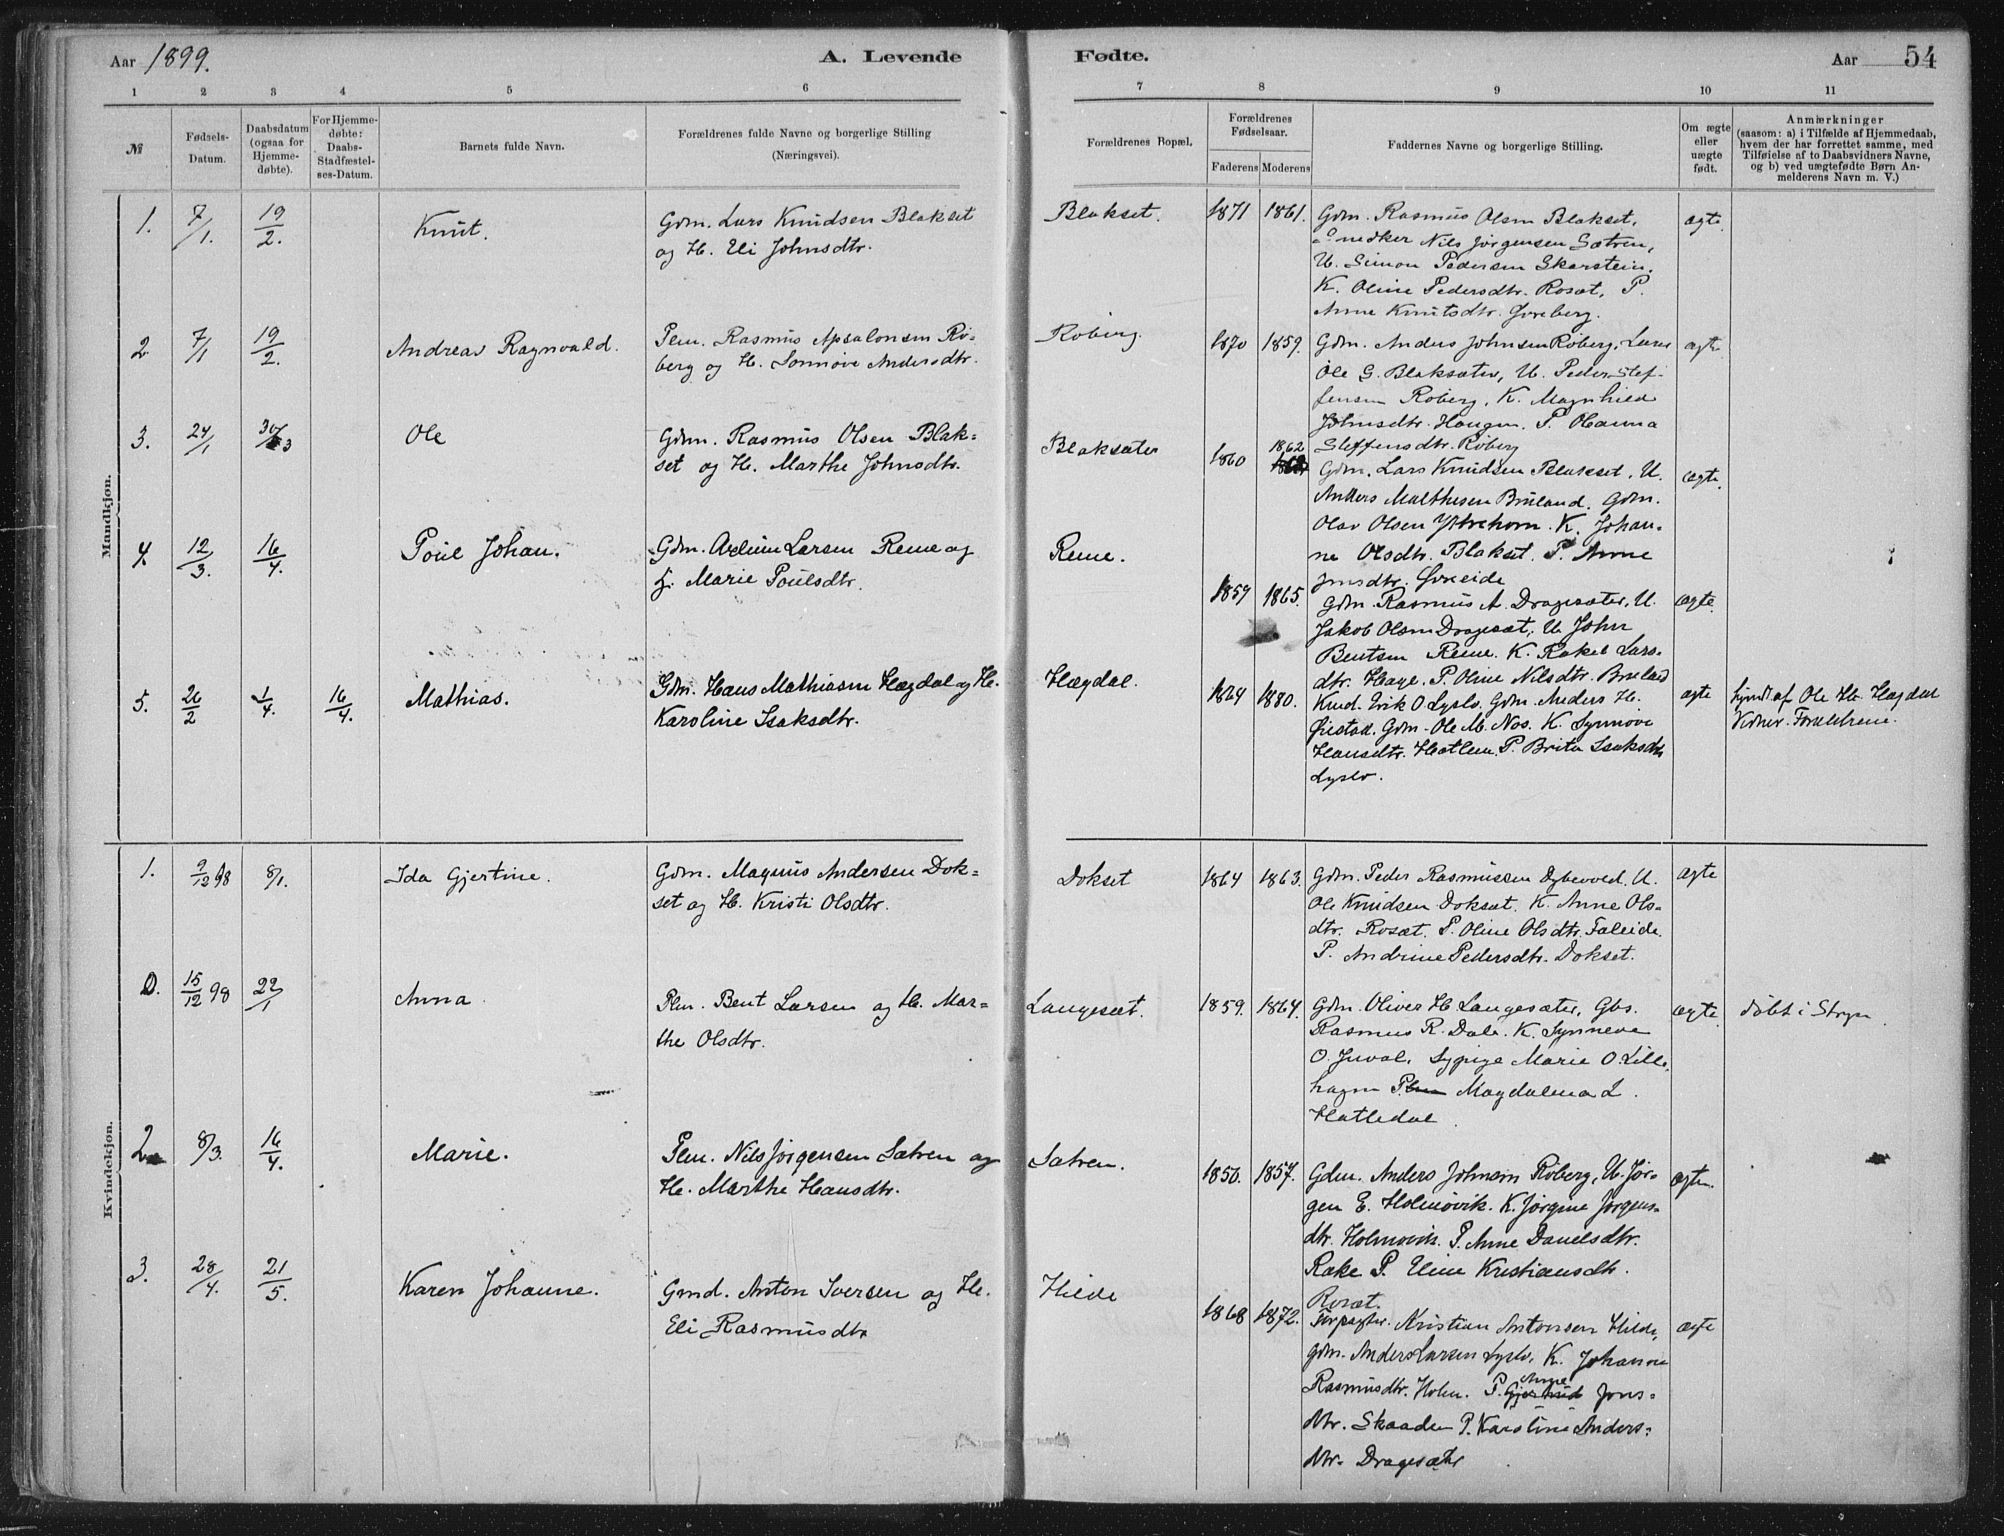 Aar 1899.
A. Levende
Fødte.
Aar
54
1 2 3 4 5 6 7 8 9 10 11
№
Fødsels-
Datum.
Daabsdatum
(ogsaa for
Hjemme-
døbte).
For Hjemme-
døbte:
Daabs-
Stadfæstel-
ses-Datum.
Barnets fulde Navn.
Forældrenes fulde Navne og borgerlige Stilling
(Næringsvei).
Forældrenes Bopæl.
Forældrenes
Fødselsaar.
Faderens Moderens
Faddernes Navne og borgerlige Stilling.
Om ægte
eller
uægte
født.
Anmærkninger
(saasom: a) i Tilfælde af Hjemmedaab,
hvem der har forrettet samme, med
Tilføielse af to Daabsvidners Navne,
og b) ved uægtefødte Børn An-
melderens Navn m. V.)
Mandkjøn.
1. 7/1. 19/2. Knut.
Gdm. Lars Knudsen Blakset
og H. Eli Johnsdtr.
Blakset. 1871 1861.
Gdm. Rasmus Olsen Blakset,
Snedker Nils Jørgensen Sætren,
U. Simon Pedersen Skarstein.
K. Oline Pedersdtr. Rosæt, P.
Anne Knutsdtr. Øvreberg.
ægte.
2 7/1 19/2. Andreas Ragnvald.
Plm. Rasmus Apsalonsen Rø-
berg og H. Sønnøve Andersdtr.
Røberg. 1870 1859.
Gdm. Anders Johnsen Røberg,
Ole S. Blaksæter, U. Peder Stef-
fensen Røberg, K. Magnhild
Johnsdtr. Haugen. P. Olianna
Steffensdtr. Røberg
ægte
3. 24/1 30/3 Ole
Gdm. Rasmus Olsen Blak-
set og H. Marthe Johnsdtr.
Blaksæter 1860 1862
Gdm. Lars Knudsen Blakset, U.
Anders Malthesen Bruland. Gdm.
Olav Olsen Ytrehorn. K. Johan-
ne Olsdtr. Blakset. P. Anne
Jonsdtr. Øvreeide
ægte.
4. 12/3. 16/4. Poul Johan.
Gdm. Larsen Reme og
H. Marie Poulsdtr.
Reme. 1859 1865.
Gdm. Rasmus A. Dragesæter, U.
Jakob Olsen Dragesæt, U. John
Bentsen Reme. K. Rakel Lars-
dtr. Hage. P. Oline Nilsdtr. Bruland
ægte.
5. 26/2 1/4. 16/4. Mathias.
Gdm. Hans Mathiasen Hægdal og H.
Karoline Isaksdtr.
Hægdal. 1864 1880.
Kud. Erik O Lyslo, Gdm. Anders H.
Øiestad. Gdm. Ole M. Nos. K. Synnøve
Hansdtr. Hatlem. P. Brita Isaksdtr
Lyslo.
ægte
af Ole H. Hægdal
Vidner. Forældrene.
Kvindekjøn.
1. 9/12 98 8/1. Ida Gjertine.
Gdm. Magnus Andersen Dok-
set og H. Kristi Olsdtr.
Dokset 1864 1863.
Gdm. Peder Rasmussen Dybevold. U.
Ole Knudsen Doksæt. K. Anne Ols-
dtr. Rosæt. P. Oline Olsdtr. Faleide.
P. Andrine Pedersdtr. Dokset.
ægte
0. 15/12 98 22/1 Anna.
Plm. Bent Larsen og H. Mar-
the Olsdtr.
Langesæt. 1859. 1864.
Gdm. Oliver H. Langesæter, Gbs.
Rasmus R. Dale. K. Synneve
O. Juval, Sypige Marie O. Lille-
hagen P. Magdalena L.
Hatledal
ægte.
døbt i Stryn.
2 8/3. 16/4. Marie.
Plm. Nils Jørgensen Sætren og
H. Marthe Hansdtr.
Sætren. 1850. 1857.
Gdm. Anders Johnsen Røberg, U. Jør-
gen E. Holmøvik. K. Jørgine Jørgens-
dtr. Holmøvik. P. Anne Danelsdtr.
Rake P. Eline Kristiansdtr.
Rosæt.
ægte.
3. 28/4. 21/5. Karen Johanne.
Gmd. Anton Iversen og H.
Eli Rasmusdtr
Hilde 1868 1872.
Forpagter. Kristian Antonsen Hilde,
Gdm. Anders Larsen Lyslo, K. Johanne
Rasmusdtr. Holm. P. Anne Jons-
dtr. Skaaden P. Karoline Anders-
dtr. Dragesæter
ægte